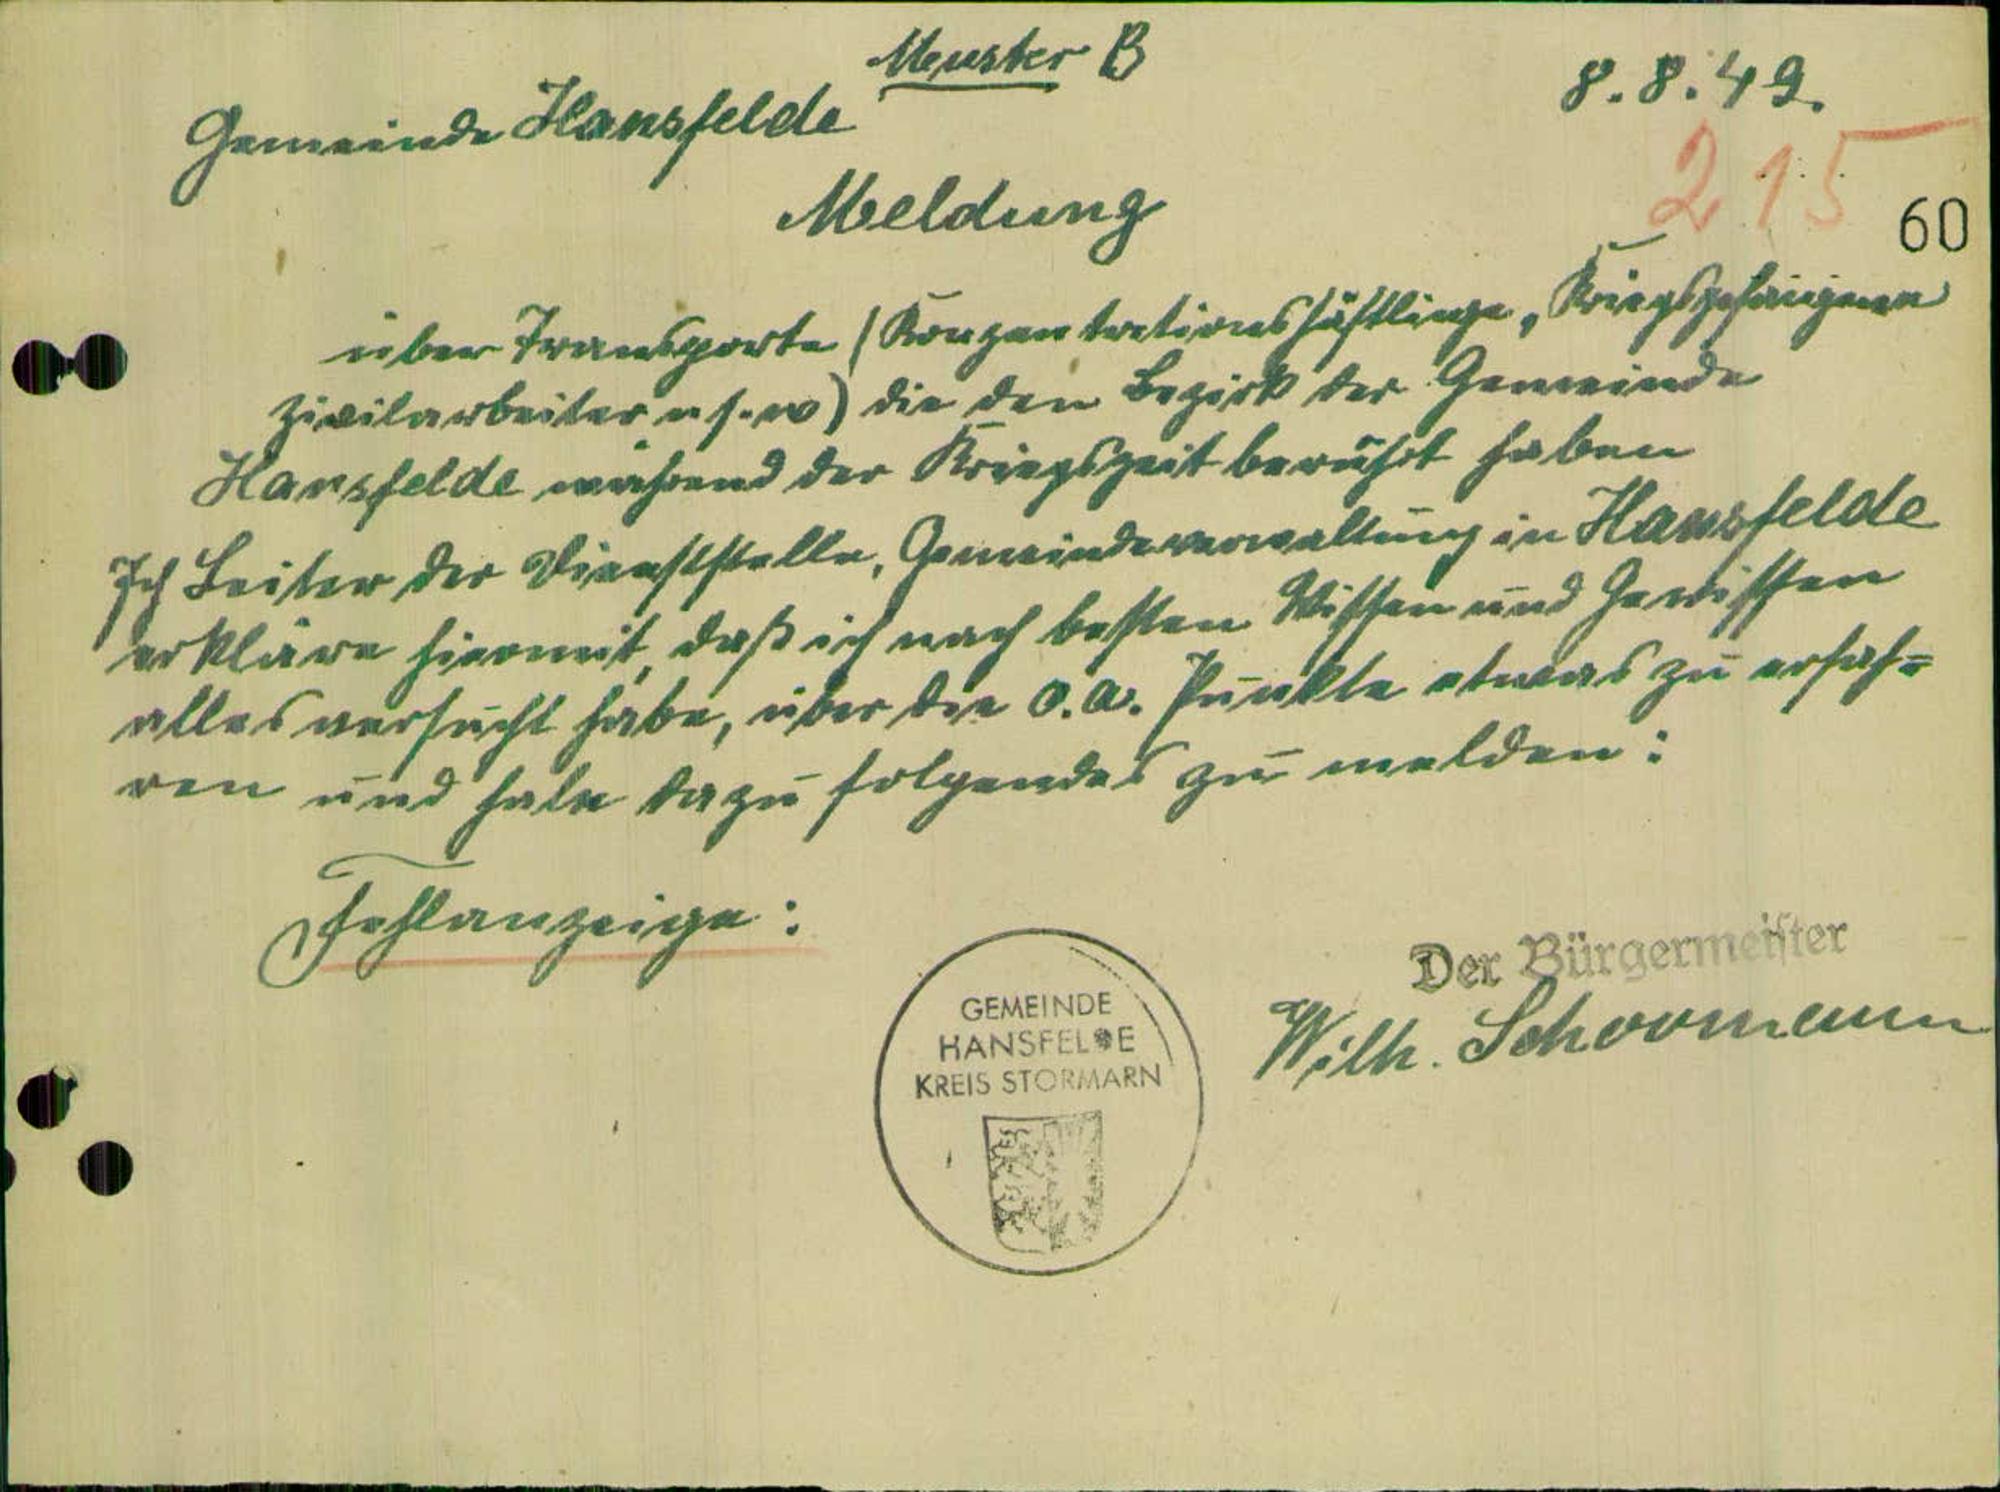 Muster B
8.8.49.
Gemeinde Hansfelde
215
Meldung
60
über Transporte (Konzentrationshäftlinge, Kriegsgefangenen
Zivilarbeiter u s. w) die den Bezirk der Gemeinde
Hansfelde während der Kriegszeit berührt haben
Ich Leiter der Dienststelle, Gemeindeverwaltung in Hansfelde
erkläre hiermit, daß ich nach besten Wissen und Gewissen
alles versucht habe, über die o. a. Punkte etwas zu erfah=
ren und habe dazu folgendes zu melden:
Fehlanzeige:
Der Bürgermeister
Wilh. Schoomann
GEMEINDE
HANSFELDE
KREIS STORMARN